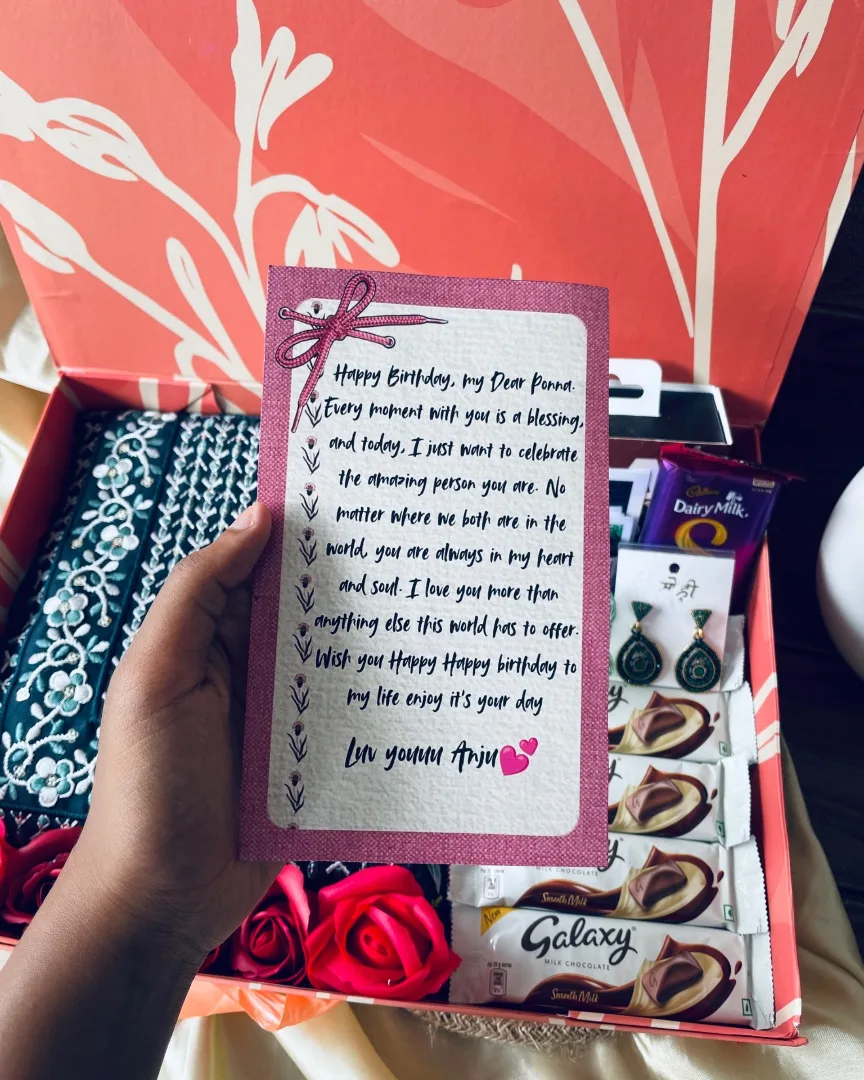 Happy Birthday, my Dear Ponna.
Every moment with you is a blessing,
and today, I just want to celebrate
the amazing person you are. No
matter where we both are in the
world, you are always in my heart
and soul. I love you more than
anything else this world has to offer.
Wish you Happy Happy birthday to
my life enjoy it's your day
Luv youuu Anju💕
Cadbury
Dairy Milk
S
y
y
y
MILK CHOCOLATE
Smooth Milk
New
Galaxy
MILK CHOCOLATE
Smooth Milk